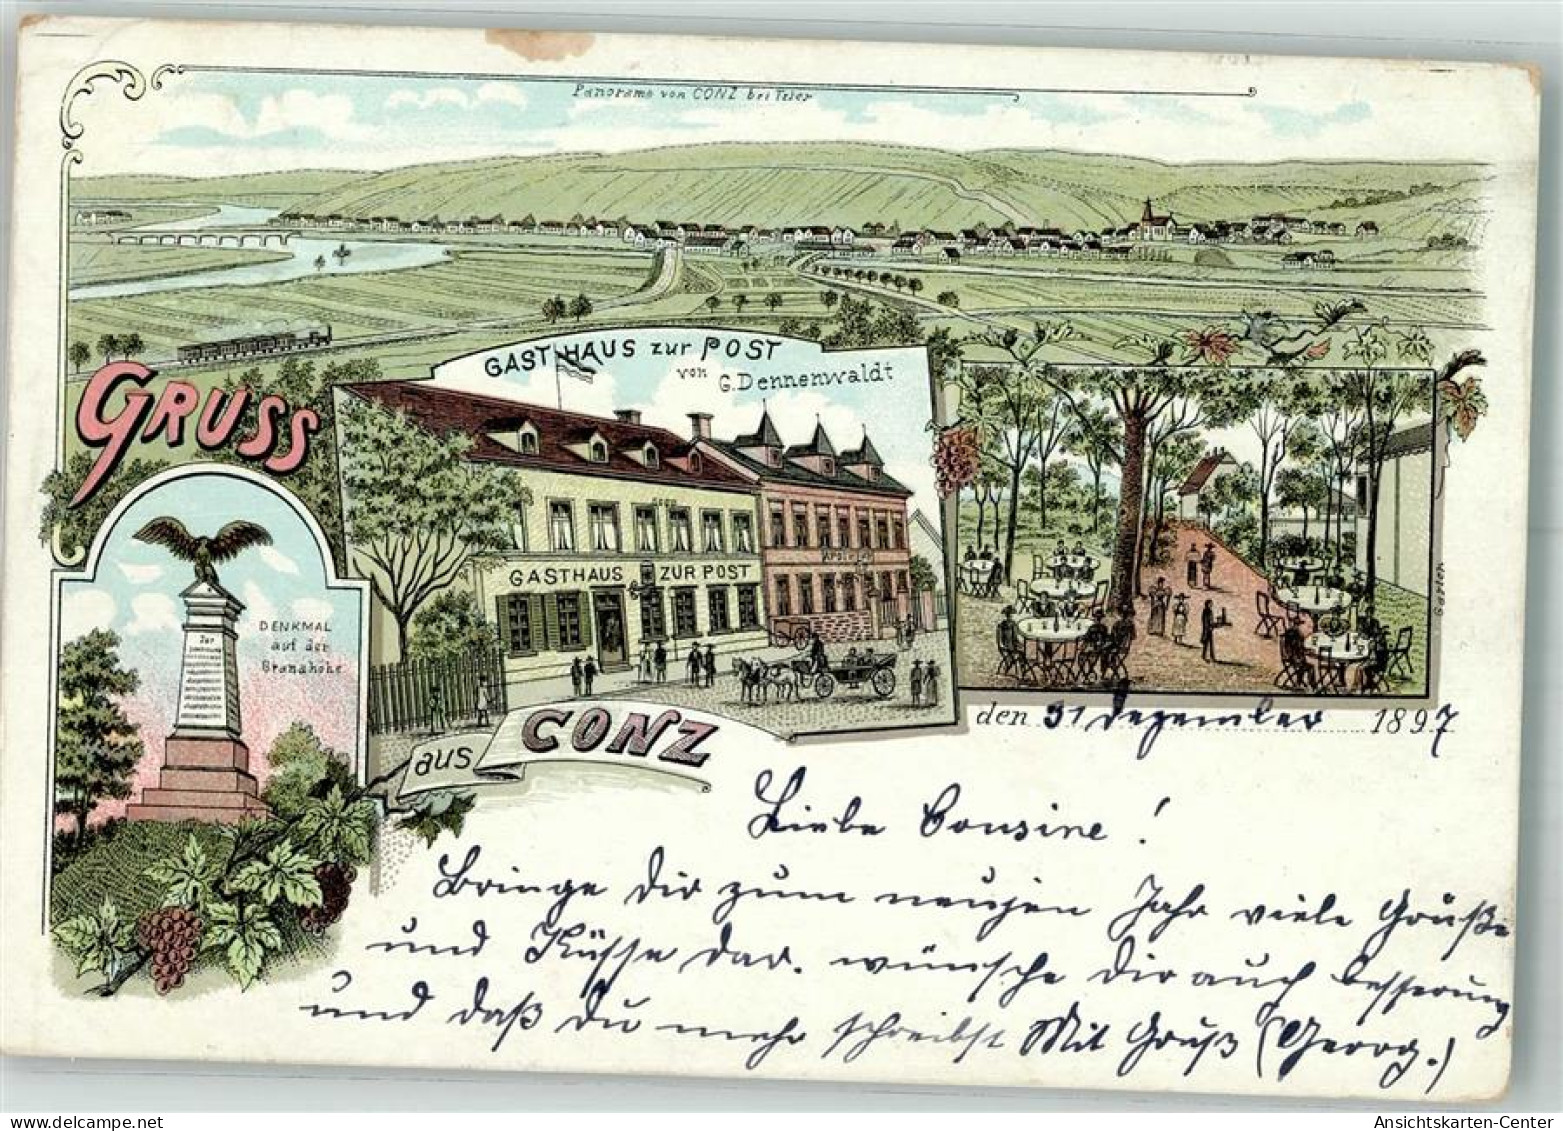 Panorama von CONZ bei Trier
GASTHAUS zur POST
von G. Dennenwaldt
GRUSS
GASTHAUS ZUR POST
DENKMAL
auf der
Granahöhe
Zur
Garten
aus CONZ
den 31 Dezember 1897
Liebe Cousine!
Bringe dir zum neujen Jahr viele Grüße
und Küsse dar. wünsche dir auch besserung
und daß du mehr schreibst Mit Gruß (Georg.)
Ansichtskarten-Center